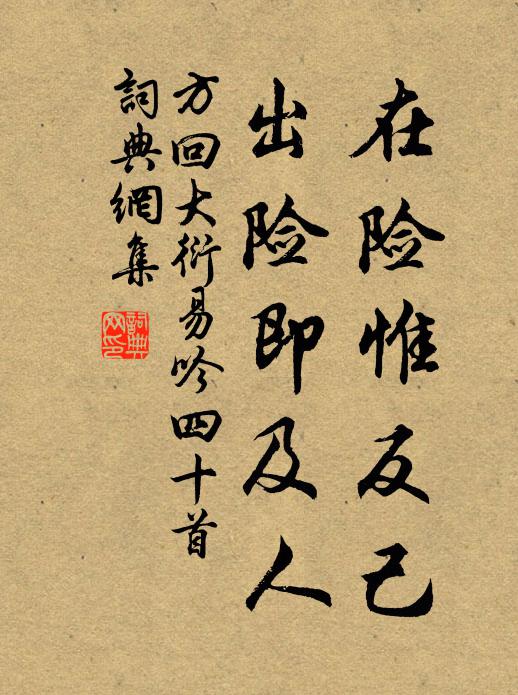 在险惟反己
出险即及人
方回大衍易吟四十首
詞典網集
詞典網印